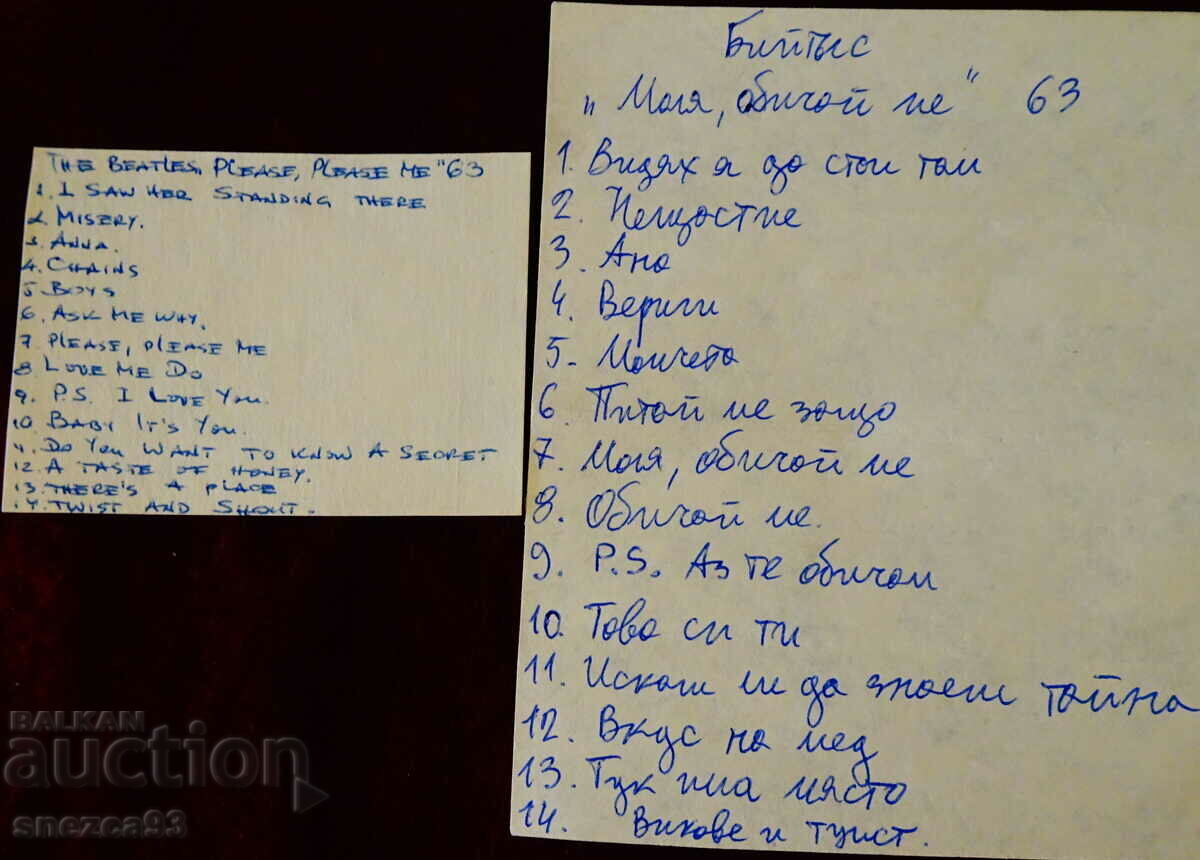 THE BEATLES, PLEASE, PLEASE ME "63
1. I SAW HER STANDING THERE
2. MISERY.
3. ANNA.
4. CHAINS
5 BOYS
6. ASK ME WHY.
7. PLEASE, PLEASE ME
8 LOVE ME DO
9. P.S. I LOVE YOU.
10. BABY IT'S YOU.
11. DO YOU WANT TO KNOW A SECRET
12. A TASTE OF HONEY.
13. THERE'S A PLACE
14. TWIST AND SHOUT.
Бийтълс
„Моля, обичай ме" 63
1. Видях я до стои там
2. Нещастие
3. Ана
4. Вериги
5. Момчета
6 Питай ме защо
7. Моля, обичай ме
8. Обичай ме.
9. P.S. Аз те обичам
10. Това си ти
11. Искаш ли да знаеш тайна
12. Вкус на мед
13. Тук има място
14. Викове и туист.
BALKAN
auction
snezca93